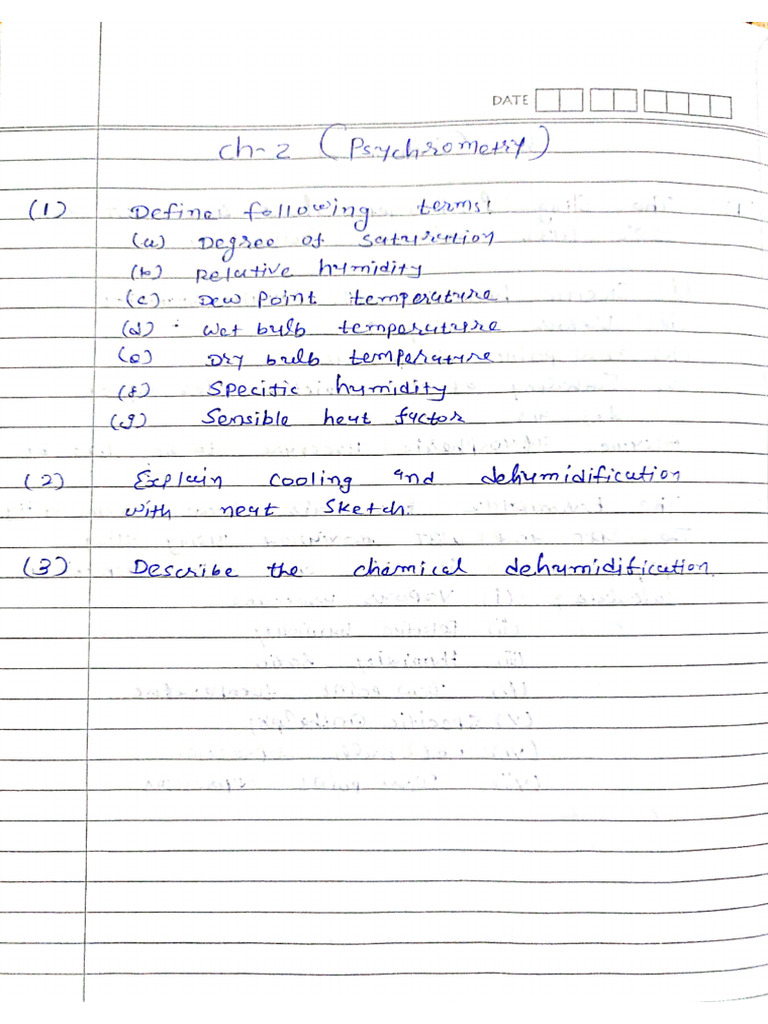 DATE
Ch-2 (Psychrometry)
(1) Define following terms:
(a) Degree of saturation
(b) Relative humidity
(c) Dew point temperature.
(d) Wet bulb temperature
(e) Dry bulb temperature
(f) Specific humidity
(g) Sensible heat factor
(2) Explain cooling and dehumidification
with neat sketch.
(3) Describe the chemical dehumidification.